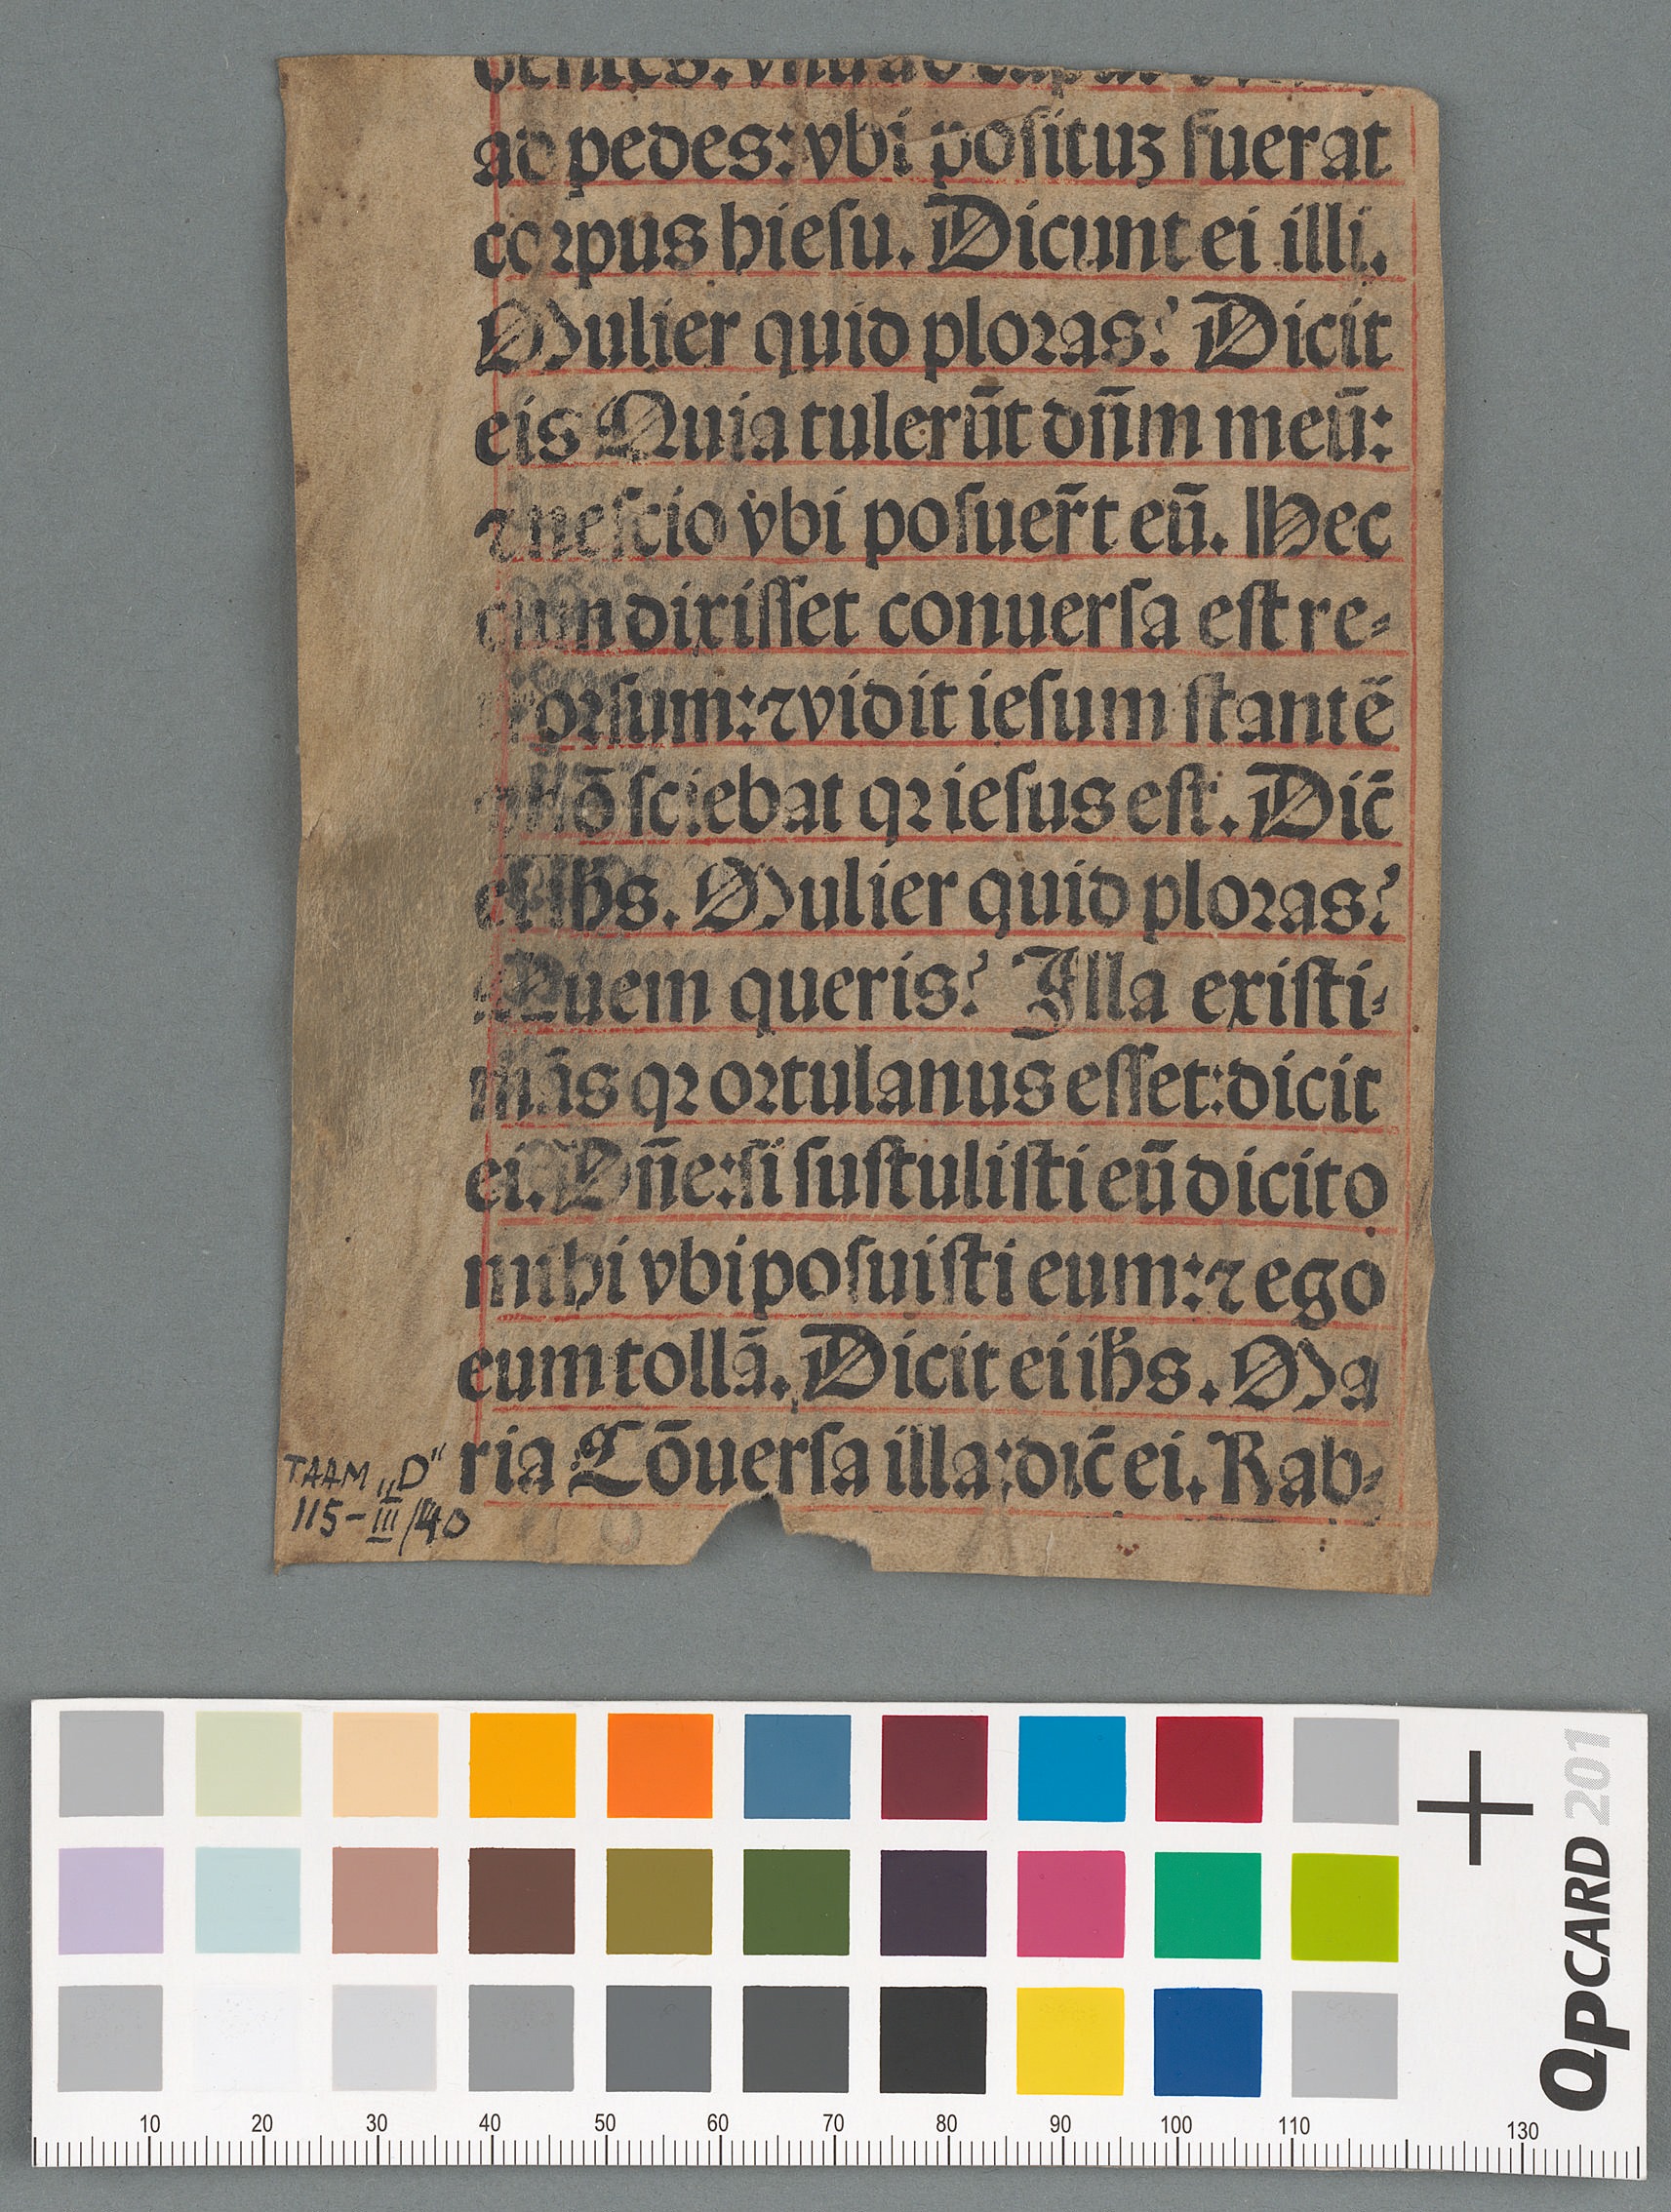 dentes. vnu ad caput
ad pedes: vbi posituʒ fuerat
corpus hiesu. Dicunt ei illi.
Mulier quid ploras? Dicit
eis Quia tulerūt dn̄m meū:
⁊ nescio vbi posuer̄t eū. Hec
cum dixisset conuersa est re-
trorsum: ⁊ vidit iesum stantē
⁊ nō sciebat qꝛ iesus est. Dic̄
ei ihs. Mulier quid ploras?
Quem queris? Illa existi-
mās qꝛ ortulanus esset: dicit
ei. Dn̄e: si sustulisti eū dicito
mihi vbi posuisti eum: ⁊ ego
eum tollā. Dicit ei ihs. Ma
ria Cōuersa illa: dic̄ ei. Rab-
TAAM „D“
115-III/40
QPCARD 201
10 20 30 40 50 60 70 80 90 100 110 130